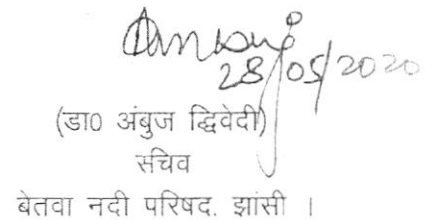 28/05/2020
(डा0 अंबुज द्विवेदी)
सचिव
बेतवा नदी परिषद. झांसी ।